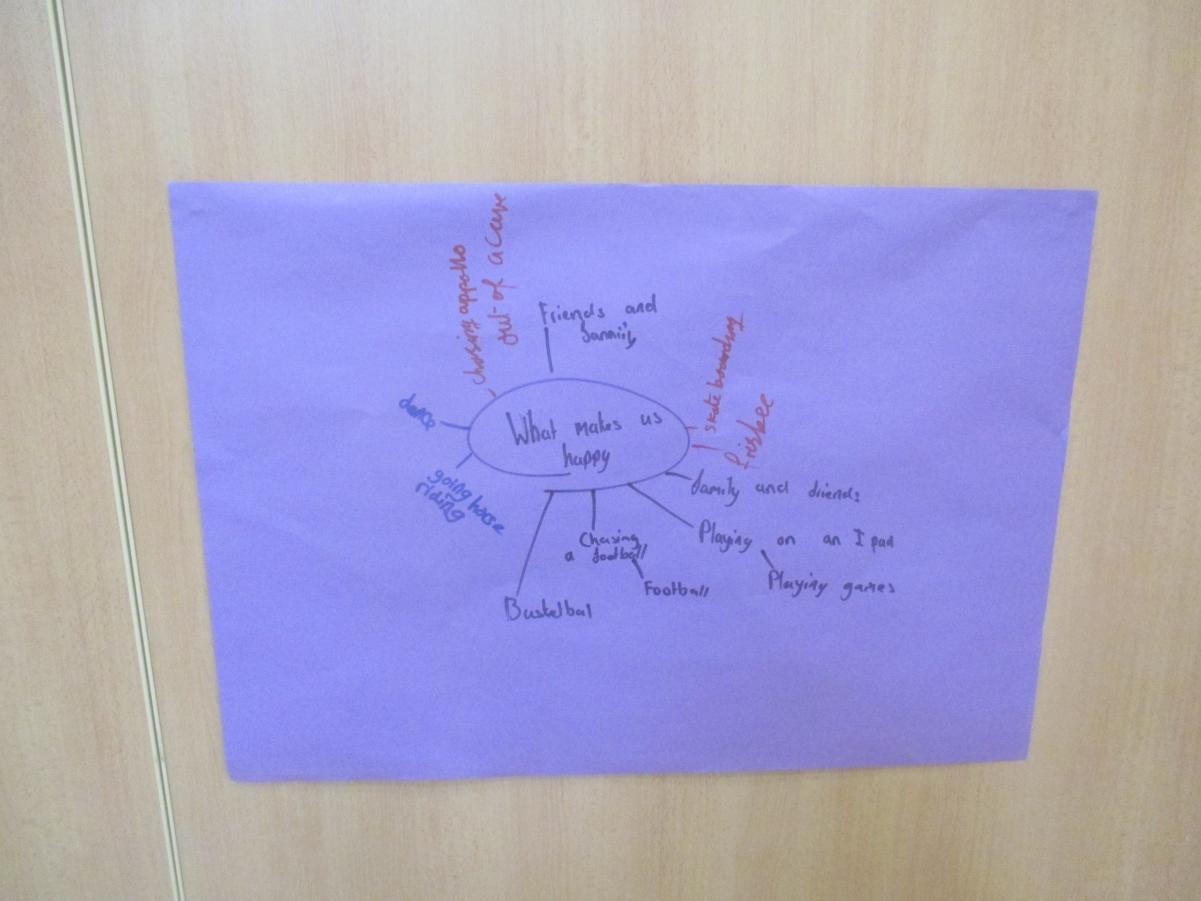 What makes us
happy
Friends and
family
skate boarding
frisbee
family and friends
Playing on an I pad
Playing games
Chasing
a football
Football
Basketbal
going horse
riding
dance
chasing appollo
out of a cave